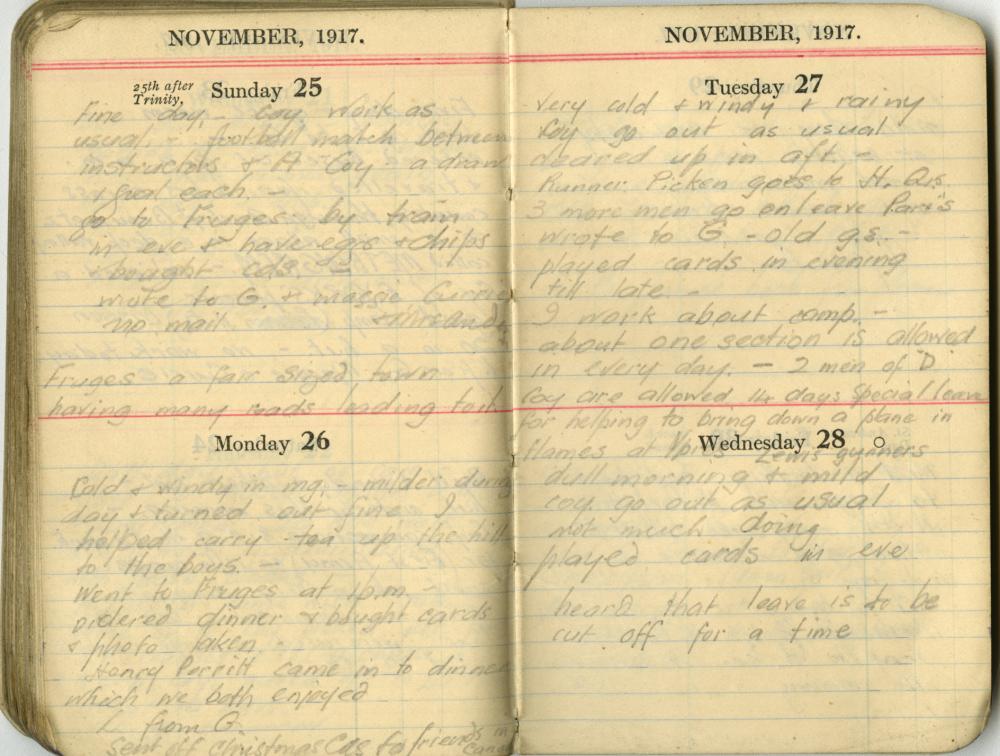 NOVEMBER, 1917.
25th after Trinity, Sunday 25
Fine day, - Coy work as
usual. - football match between
instructors & A Coy a draw
1 goal each. -
go to Fruges by train
in eve & have eggs & chips
& bought cds -
wrote to G. & Maggie Currie
no mail
Fruges a fair sized town
having many roads leading forth
Monday 26
Cold & windy in mg. - milder during
day & turned out fine I
helped carry tea up the hill
to the boys. -
went to Fruges at 1 p.m. -
ordered dinner & bought cards
& photo taken -
Henry Perritt came in to dinner
which we both enjoyed
L from G.
sent off Christmas Cds to friends in
NOVEMBER, 1917.
Tuesday 27
Very cold & windy & rainy
Coy go out as usual
cleared up in aft. -
Runner Picken goes to H. Qrs.
3 more men go on leave Paris
wrote to G. - old g.s. -
played cards in evening
till late -
I work about camp. -
about one section is allowed
in every day. - 2 men of D
Coy are allowed 14 days Special leave
for helping to bring down a plane in
flames at Ypres Lewis gunners
Wednesday 28
dull morning & mild
coy go out as usual
not much doing
played cards in eve
heard that leave is to be
cut off for a time